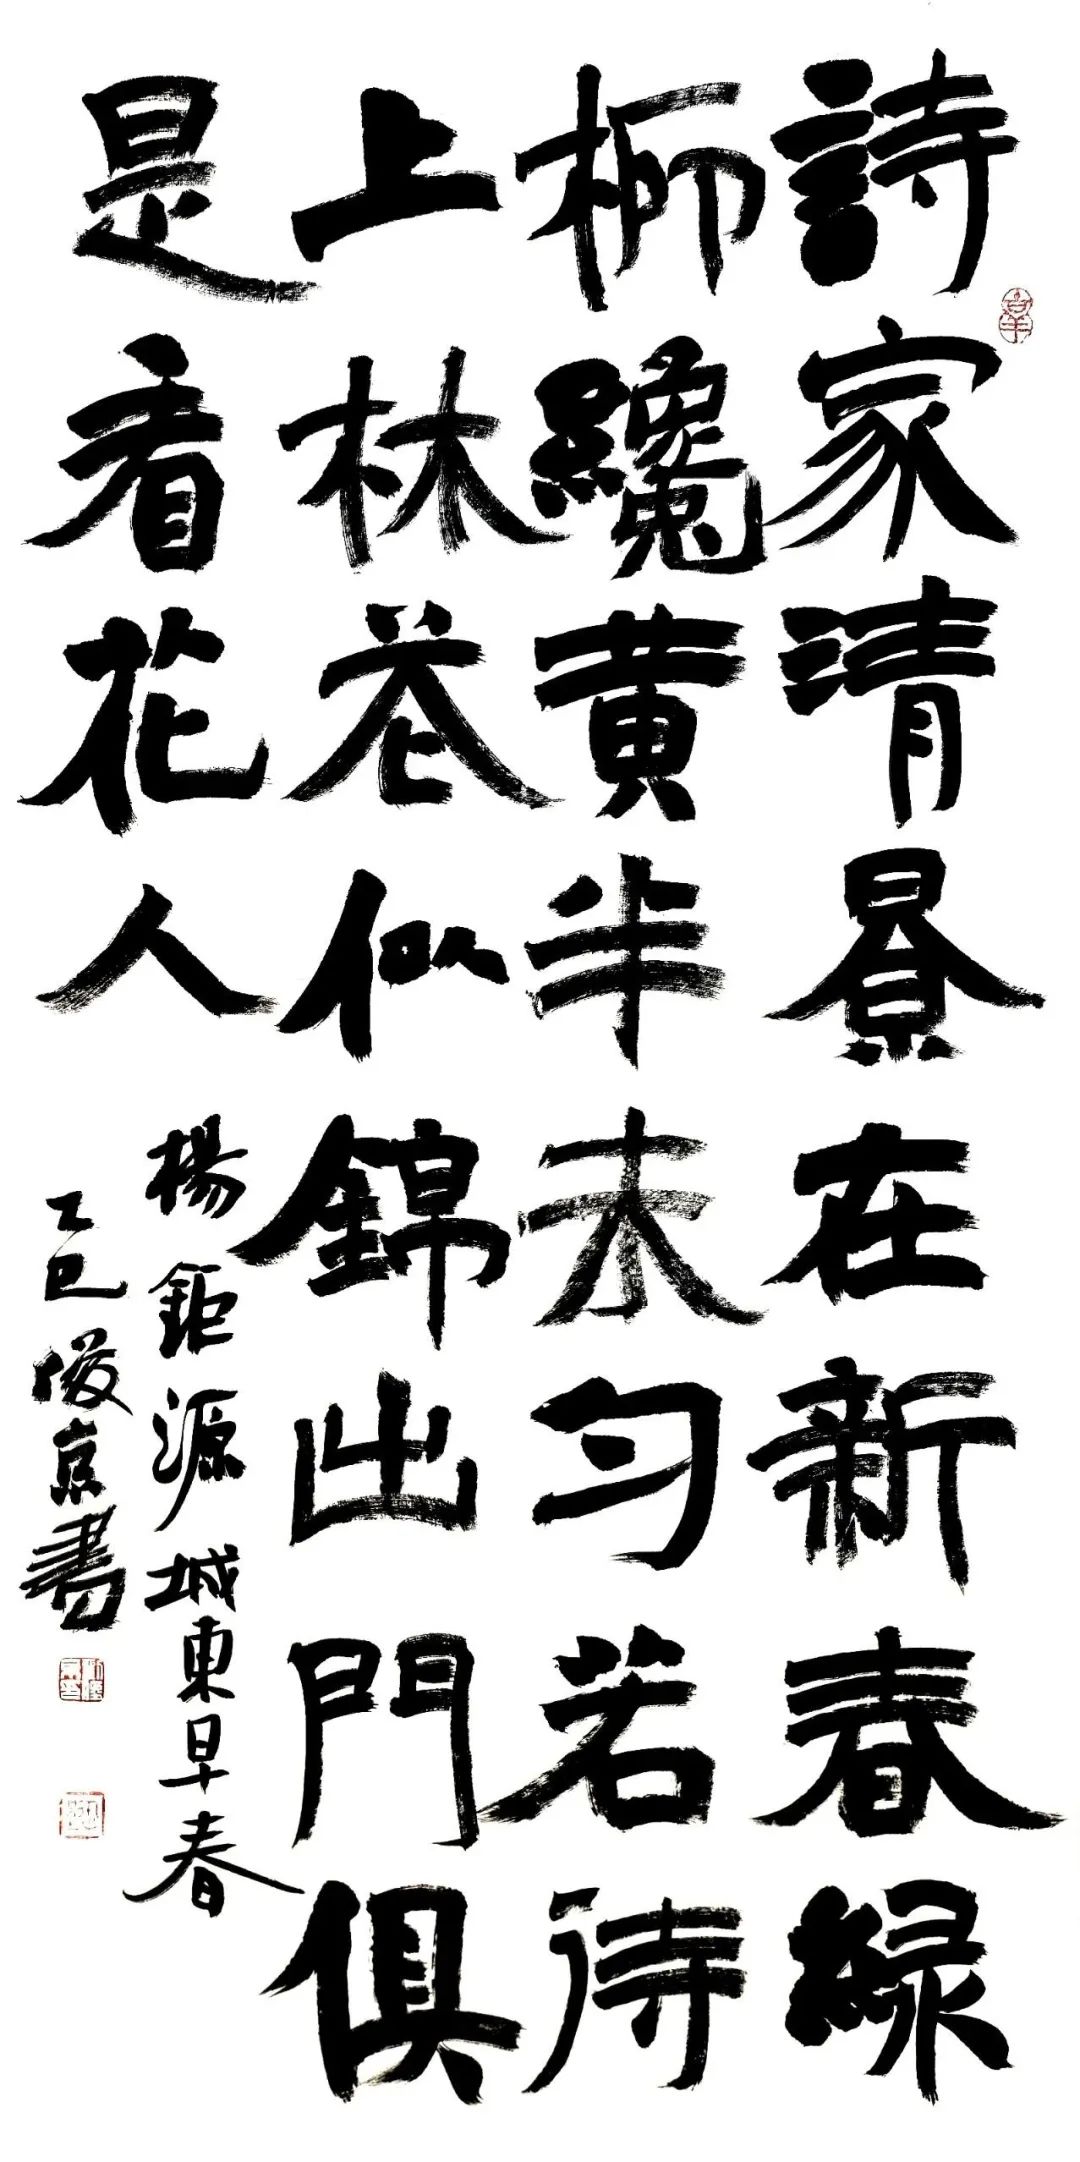 詩家清景在新春緑
柳纔黄半未匀若待
上林花似錦出門俱
是看花人
楊鉅源城東早春
乙巳俊京書